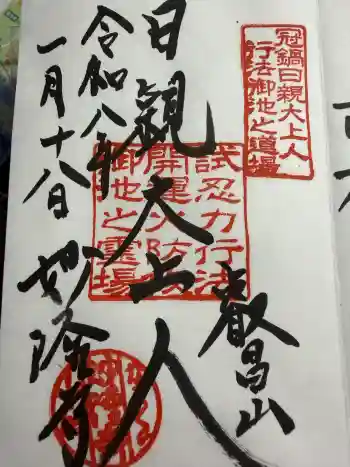 冠鍋日親大上人
行法御池之道場
叡昌山
試忍力行法
開運火防
御池之霊場
日親大上人
令和八年
一月十八日
妙隆寺